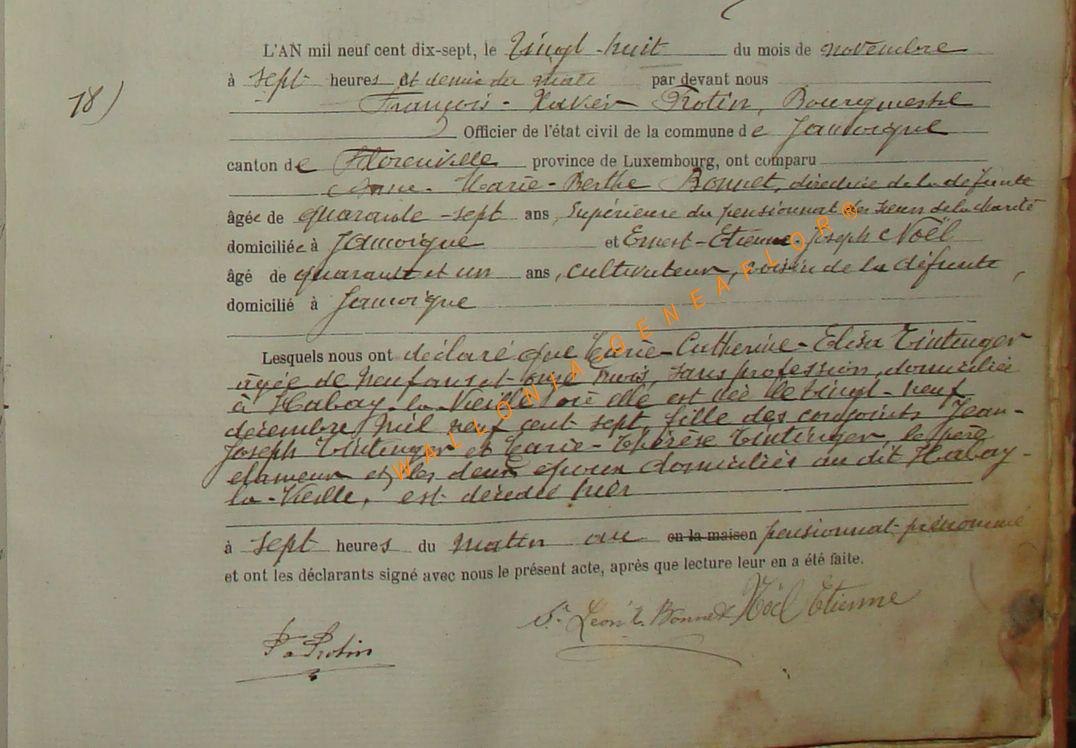 L'AN mil neuf cent dix-sept, le vingt-huit du mois de novembre
à sept heures et demie du matin par devant nous
18)
François-Xavier Rotin, Bourgmestre
Officier de l'état civil de la commune de Jamoigne
canton de Florenville province de Luxembourg, ont comparu
Marie-Berthe Bonnet, directrice de la défunte
âgée de quarante-sept ans, Supérieure du pensionnat des Sœurs de la charité
domiciliée à Jamoigne et Ernest-Etienne-Joseph Noël
âgé de quarante et un ans, cultivateur, voisin de la défunte,
domicilié à Jamoigne
Lesquels nous ont déclaré que Marie-Catherine-Elisa Tintinger
agée de neuf ans et onze mois, sans profession, domiciliée
à Habay-la-Vieille où elle est née le vingt-neuf
décembre mil neuf cent sept, fille des conjoints Jean-
Joseph Tintinger et Marie-Thérèse Tintinger, le père
et les deux époux domiciliés au dit Habay-
la-Vieille, est décédée hier
à sept heures du matin au en la maison pensionnat prénommé
et ont les déclarants signé avec nous le présent acte, après que lecture leur en a été faite.
Sr Bonnet Noël Etienne
Rotin
WALLONIA GENEAFLOR®